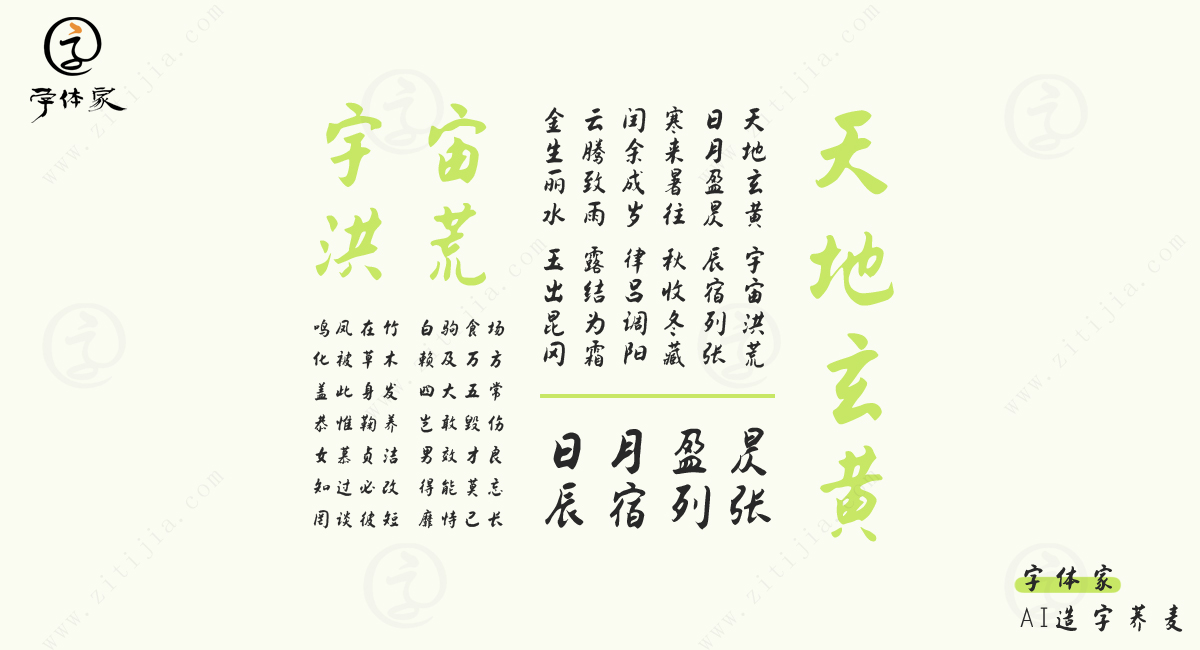 字体家
宇宙
洪荒
鸣凤在竹 白驹食场
化被草木 赖及万方
盖此身发 四大五常
恭惟鞠养 岂敢毁伤
女慕贞洁 男效才良
知过必改 得能莫忘
罔谈彼短 靡恃己长
天地玄黄 宇宙洪荒
日月盈昃 辰宿列张
寒来暑往 秋收冬藏
闰余成岁 律吕调阳
云腾致雨 露结为霜
金生丽水 玉出昆冈
日月盈昃
辰宿列张
天地玄黄
字体家
AI造字荞麦
www.zitijia.com
www.zitijia.com
www.zitijia.com
www.zitijia.com
www.zitijia.com
www.zitijia.com